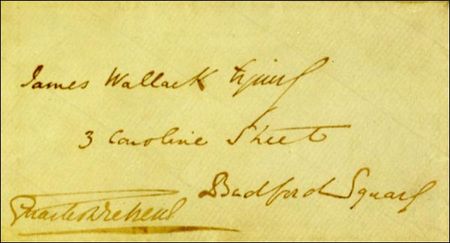 James Wallack Esquire
3 Caroline Street
Bedford Square
Charles Dickens